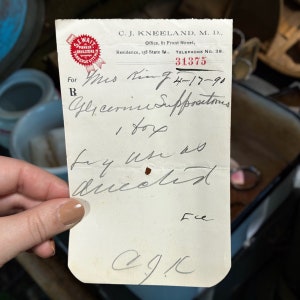 C. J. KNEELAND, M. D.,
Office, 81 Front Street,
Residence, 198 State St. TELEPHONE NO. 38.
31375
For Mrs King 4-17-90
R
Glycerine Suppositories
1 box
Sig Use as
directed
CJK